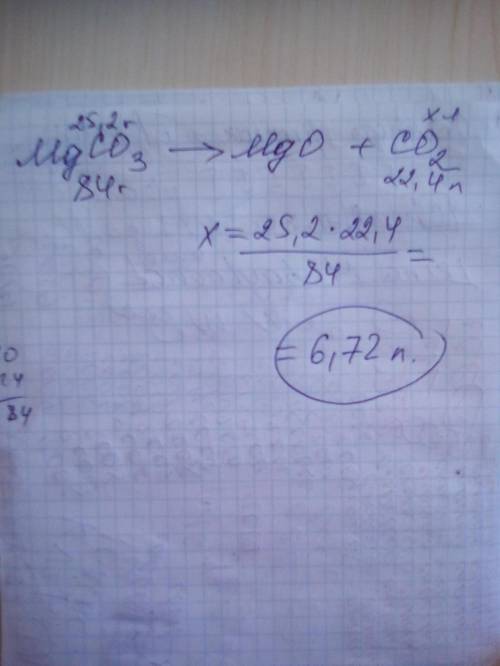 25,2 г х л
MgCO3 → MgO + CO2
84г 22,4 л
х = 25,2 · 22,4 / 84 =
= 6,72 л.
0
24
84